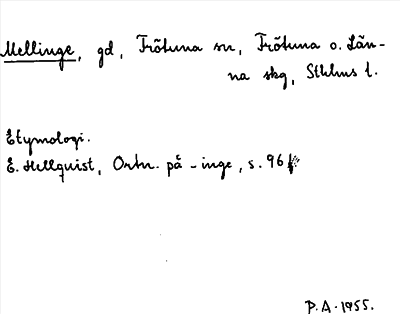 Mellinge, gd, Frötuna sn, Frötuna o. Län-
na skg, Sthlms l.
Etymologi.
E. Hellquist, Ortn. på -inge, s. 96
P.A. 1955.